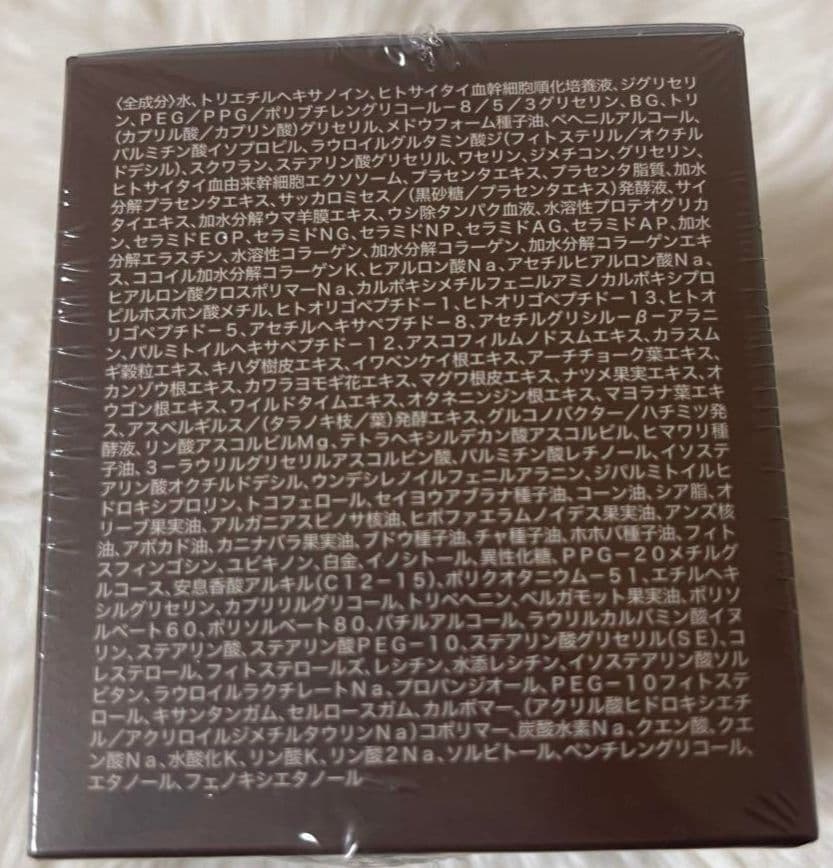 〈全成分〉水、トリエチルヘキサノイン、ヒトサイタイ血幹細胞順化培養液、ジグリセリ
ン、PEG/PPG/ポリブチレングリコール-8/5/3グリセリン、BG、トリ
(カプリル酸/カプリン酸)グリセリル、メドウフォーム種子油、ベヘニルアルコール、
パルミチン酸イソプロピル、ラウロイルグルタミン酸ジ(フィトステリル/オクチル
ドデシル)、スクワラン、ステアリン酸グリセリル、ワセリン、ジメチコン、グリセリン、
ヒトサイタイ血由来幹細胞エクソソーム、プラセンタエキス、プラセンタ脂質、加水
分解プラセンタエキス、サッカロミセス/(黒砂糖/プラセンタエキス)発酵液、サイ
タイエキス、加水分解ウマ羊膜エキス、ウシ除タンパク血液、水溶性プロテオグリカ
ン、セラミドEOP、セラミドNG、セラミドNP、セラミドAG、セラミドAP、加水
分解エラスチン、水溶性コラーゲン、加水分解コラーゲン、加水分解コラーゲンエキ
ス、ココイル加水分解コラーゲンK、ヒアルロン酸Na、アセチルヒアルロン酸Na、
ヒアルロン酸クロスポリマーNa、カルボキシメチルフェニルアミノカルボキシプロ
ピルホスホン酸メチル、ヒトオリゴペプチド-1、ヒトオリゴペプチド-13、ヒトオ
リゴペプチド-5、アセチルヘキサペプチド-8、アセチルグリシル-β-アラニ
ン、パルミトイルヘキサペプチド-12、アスコフィルムノドスムエキス、カラスム
ギ穀粒エキス、キハダ樹皮エキス、イワベンケイ根エキス、アーチチョーク葉エキス、
カンゾウ根エキス、カワラヨモギ花エキス、マグワ根皮エキス、ナツメ果実エキス、オ
ウゴン根エキス、ワイルドタイムエキス、オタネニンジン根エキス、マヨラナ葉エキ
ス、アスペルギルス/(タラノキ枝/葉)発酵エキス、グルコノバクター/ハチミツ発
酵液、リン酸アスコルビルMg、テトラヘキシルデカン酸アスコルビル、ヒマワリ種
子油、3-ラウリルグリセリルアスコルビン酸、パルミチン酸レチノール、イソステ
アリン酸オクチルドデシル、ウンデシレノイルフェニルアラニン、ジパルミトイルヒ
ドロキシプロリン、トコフェロール、セイヨウアブラナ種子油、コーン油、シア脂、オ
リーブ果実油、アルガニアスピノサ核油、ヒポファエラムノイデス果実油、アンズ核
油、アボカド油、カニナバラ果実油、ブドウ種子油、チャ種子油、ホホバ種子油、フィト
スフィンゴシン、ユビキノン、白金、イノシトール、異性化糖、PPG-20メチルグ
ルコース、安息香酸アルキル(C12-15)、ポリクオタニウム-51、エチルヘキ
シルグリセリン、カプリリルグリコール、トリベヘニン、ベルガモット果実油、ポリソ
ルベート60、ポリソルベート80、バチルアルコール、ラウリルカルバミン酸イヌ
リン、ステアリン酸、ステアリン酸PEG-10、ステアリン酸グリセリル(SE)、コ
レステロール、フィトステロールズ、レシチン、水添レシチン、イソステアリン酸ソル
ビタン、ラウロイルラクチレートNa、プロパンジオール、PEG-10フィトステ
ロール、キサンタンガム、セルロースガム、カルボマー、(アクリル酸ヒドロキシエチ
ル/アクリロイルジメチルタウリンNa)コポリマー、炭酸水素Na、クエン酸、クエ
ン酸Na、水酸化K、リン酸K、リン酸2Na、ソルビトール、ペンチレングリコール、
エタノール、フェノキシエタノール